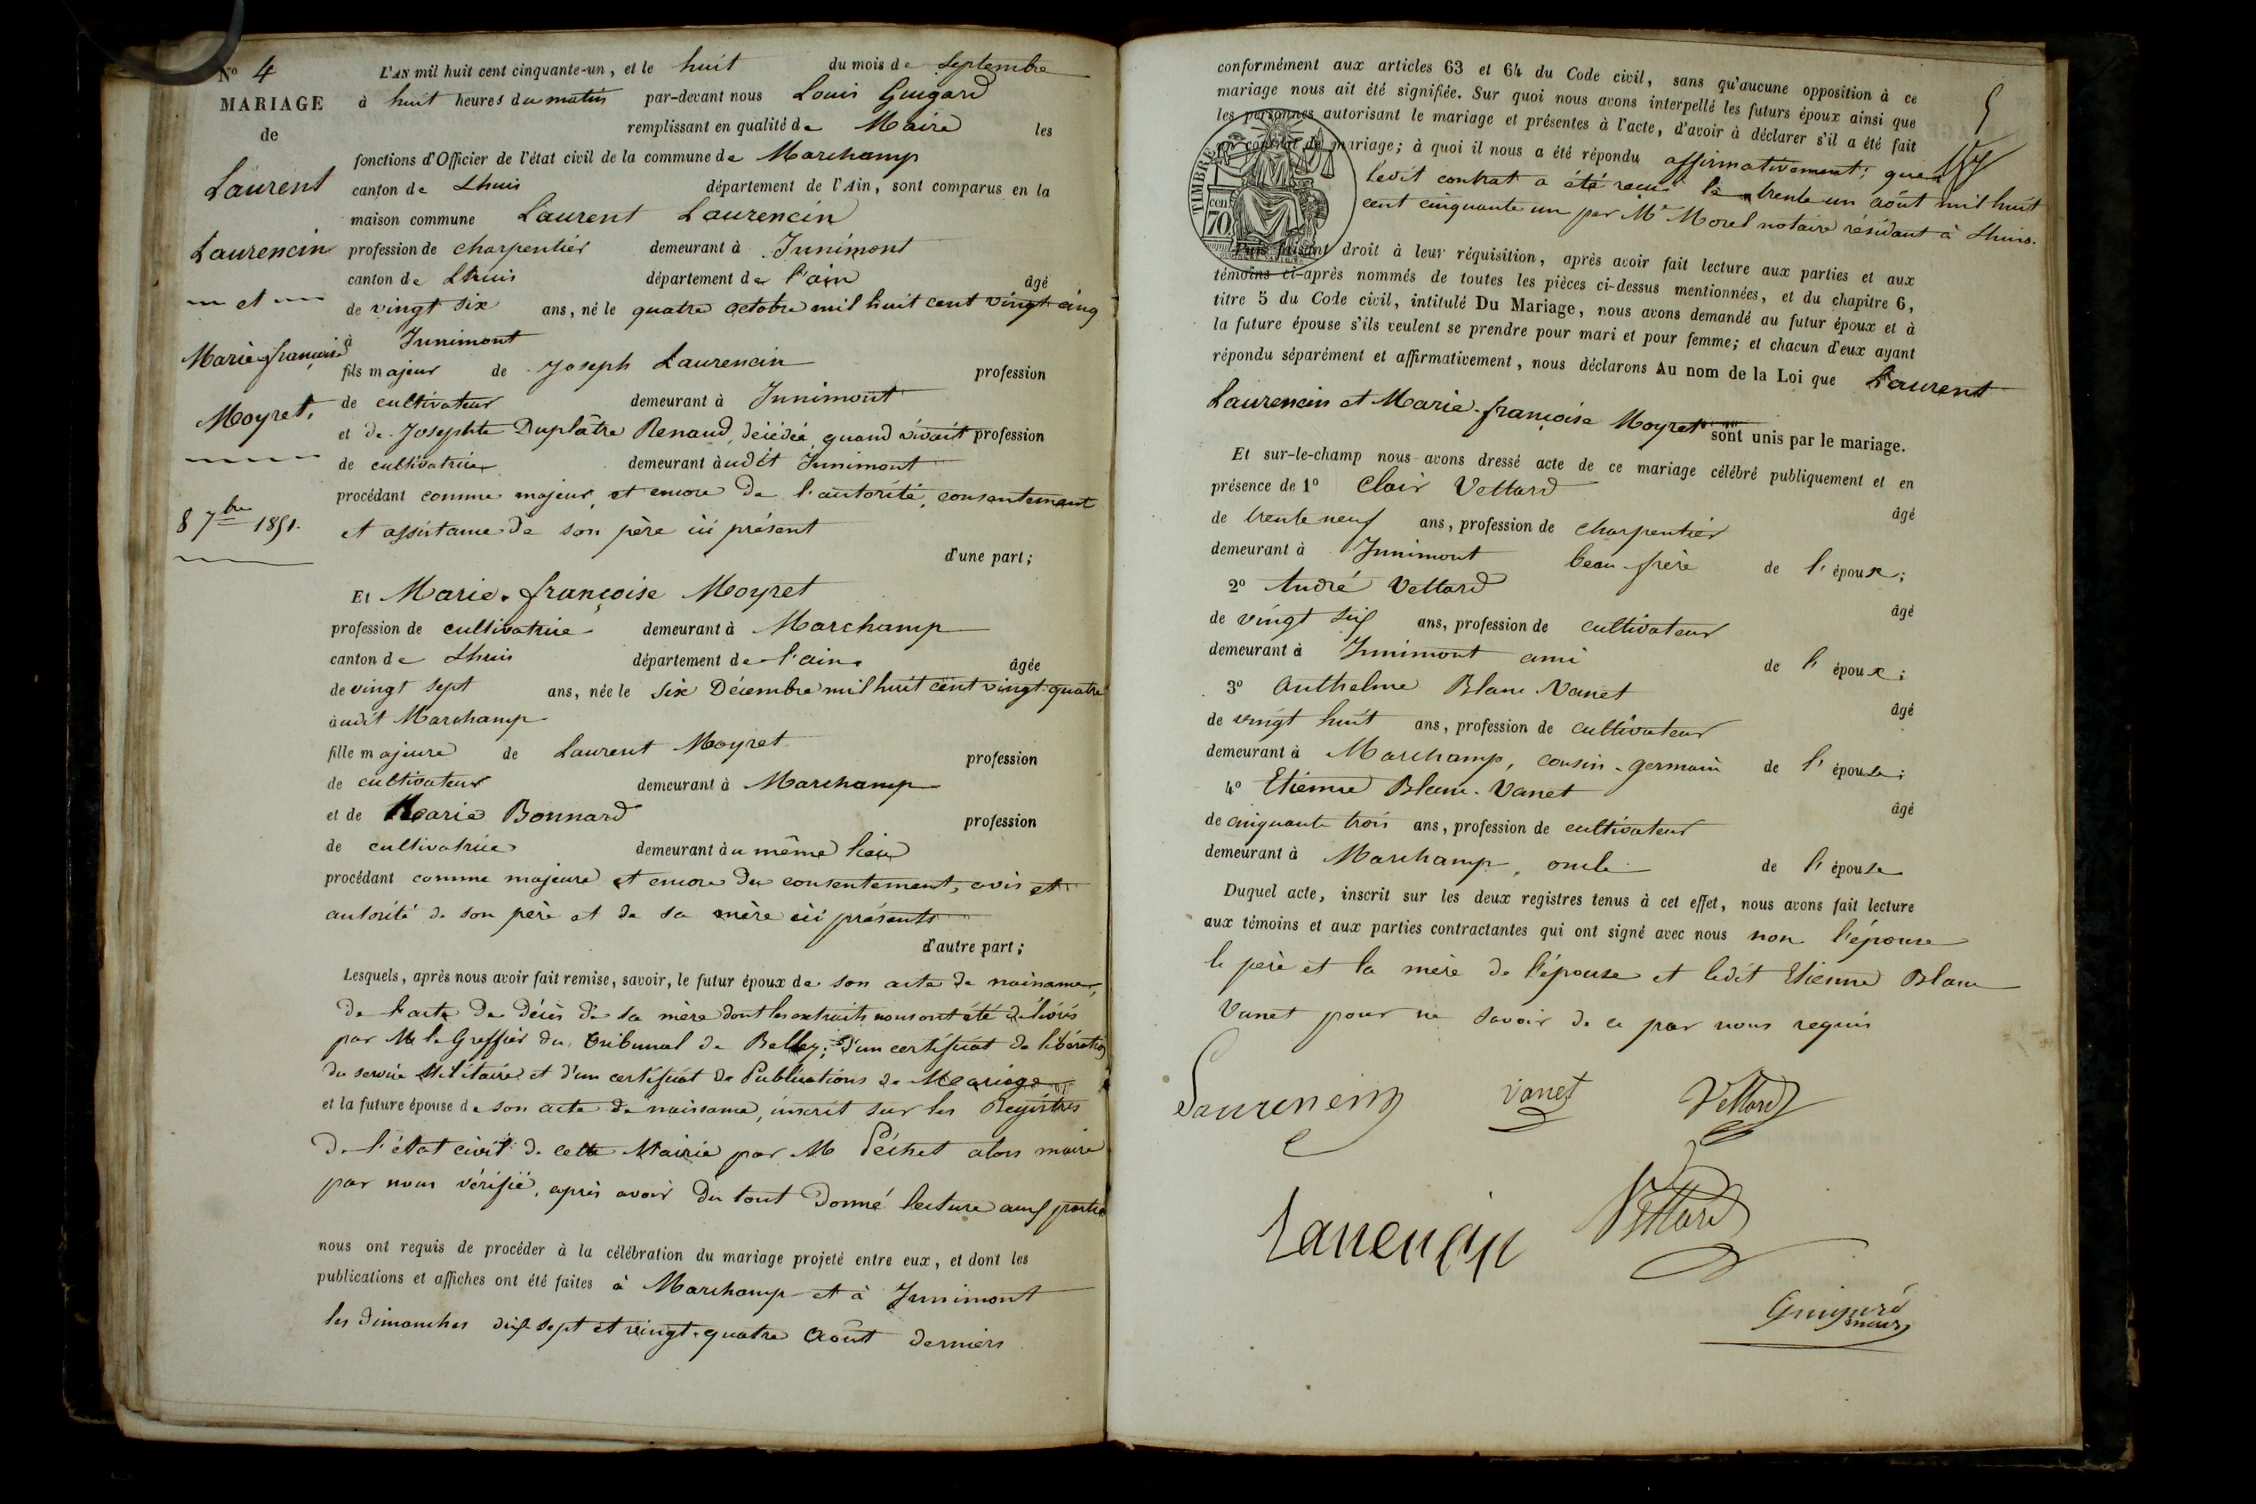 N° 4
MARIAGE
de
Laurent
Laurencin
et
Marie-françoise
Moyret.
8 7bre 1851.
L'AN mil huit cent cinquante-un, et le huit du mois de Septembre
à huit heures du matin par-devant nous Louis Guigard
remplissant en qualité de Maire les
fonctions d'Officier de l'état civil de la commune de Marchamp
canton de Lhuis département de l'Ain, sont comparus en la
maison commune Laurent Laurencin
profession de charpentier demeurant à Innimont
canton de Lhuis département de l'ain âgé
de vingt six ans, né le quatre octobre mil huit cent vingt-cinq
à Innimont
fils majeur de Joseph Laurencin profession
de cultivateur demeurant à Innimont
et de Josephte Duplâtre Renaud, décédée, quand vivait profession
de cultivatrice demeurant àudit Innimont
procédant comme majeur, et encore de l'autorité, consentement
et assistance de son père ici présent
d'une part;
Et Marie-françoise Moyret
profession de cultivatrice demeurant à Marchamp
canton de Lhuis département de l'ain âgée
de vingt sept ans, née le six Décembre mil huit cent vingt-quatre
àudit Marchamp
fille majeure de Laurent Moyret profession
de cultivateur demeurant à Marchamp
et de Marie Bonnard profession
de cultivatrice demeurant àu même lieu
procédant comme majeure et encore du consentement, avis et
autorité de son père et de sa mère ici présents
d'autre part;
Lesquels, après nous avoir fait remise, savoir, le futur époux de son acte de naissance,
de l'acte de décès de sa mère dont les extraits nous ont été délivrés
par M. le Greffier du tribunal de Belley; d'un certificat de libération
du service Militaire et d'un certificat de Publications de Mariage
et la future épouse de son acte de naissance, inscrit sur les Registres
de l'état civil de cette Mairie par M Péchet alors maire
par nous vérifié, après avoir du tout donné lecture aux parties
nous ont requis de procéder à la célébration du mariage projeté entre eux, et dont les
publications et affiches ont été faites à Marchamp et à Innimont
les dimanches dix-sept et vingt-quatre août derniers
conformément aux articles 63 et 64 du Code civil, sans qu'aucune opposition à ce
mariage nous ait été signifiée. Sur quoi nous avons interpellé les futurs époux ainsi que
les personnes autorisant le mariage et présentes à l'acte, d'avoir à déclarer s'il a été fait
un contrat de mariage; à quoi il nous a été répondu affirmativement; que
ledit contrat a été reçu le trente un août mil huit
cent cinquante un par Me Morel notaire résidant à Lhuis.
5
TIMBRE
70 cent
Puis faisant droit à leur réquisition, après avoir fait lecture aux parties et aux
témoins ci-après nommés de toutes les pièces ci-dessus mentionnées, et du chapitre 6,
titre 5 du Code civil, intitulé Du Mariage, nous avons demandé au futur époux et à
la future épouse s'ils veulent se prendre pour mari et pour femme; et chacun d'eux ayant
répondu séparément et affirmativement, nous déclarons Au nom de la Loi que Laurent
Laurencin et Marie-françoise Moyret sont unis par le mariage.
Et sur-le-champ nous avons dressé acte de ce mariage célébré publiquement et en
présence de 1° Clair Vettard âgé
de trente neuf ans, profession de charpentier
demeurant à Innimont beau-frère de l'époux;
2° André Vettard âgé
de vingt six ans, profession de cultivateur
demeurant à Innimont ami de l'époux;
3° Anthelme Blanc Vanet âgé
de vingt huit ans, profession de cultivateur
demeurant à Marchamp, cousin-germain de l'épouse;
4° Etienne Blanc-Vanet âgé
de cinquante trois ans, profession de cultivateur
demeurant à Marchamp, oncle de l'épouse
Duquel acte, inscrit sur les deux registres tenus à cet effet, nous avons fait lecture
aux témoins et aux parties contractantes qui ont signé avec nous non l'épouse
le père et la mère de l'épouse et ledit Etienne Blanc
Vanet pour ne savoir de ce par nous requis
Laurencin Vanet Vettard
Laurencin Vettard